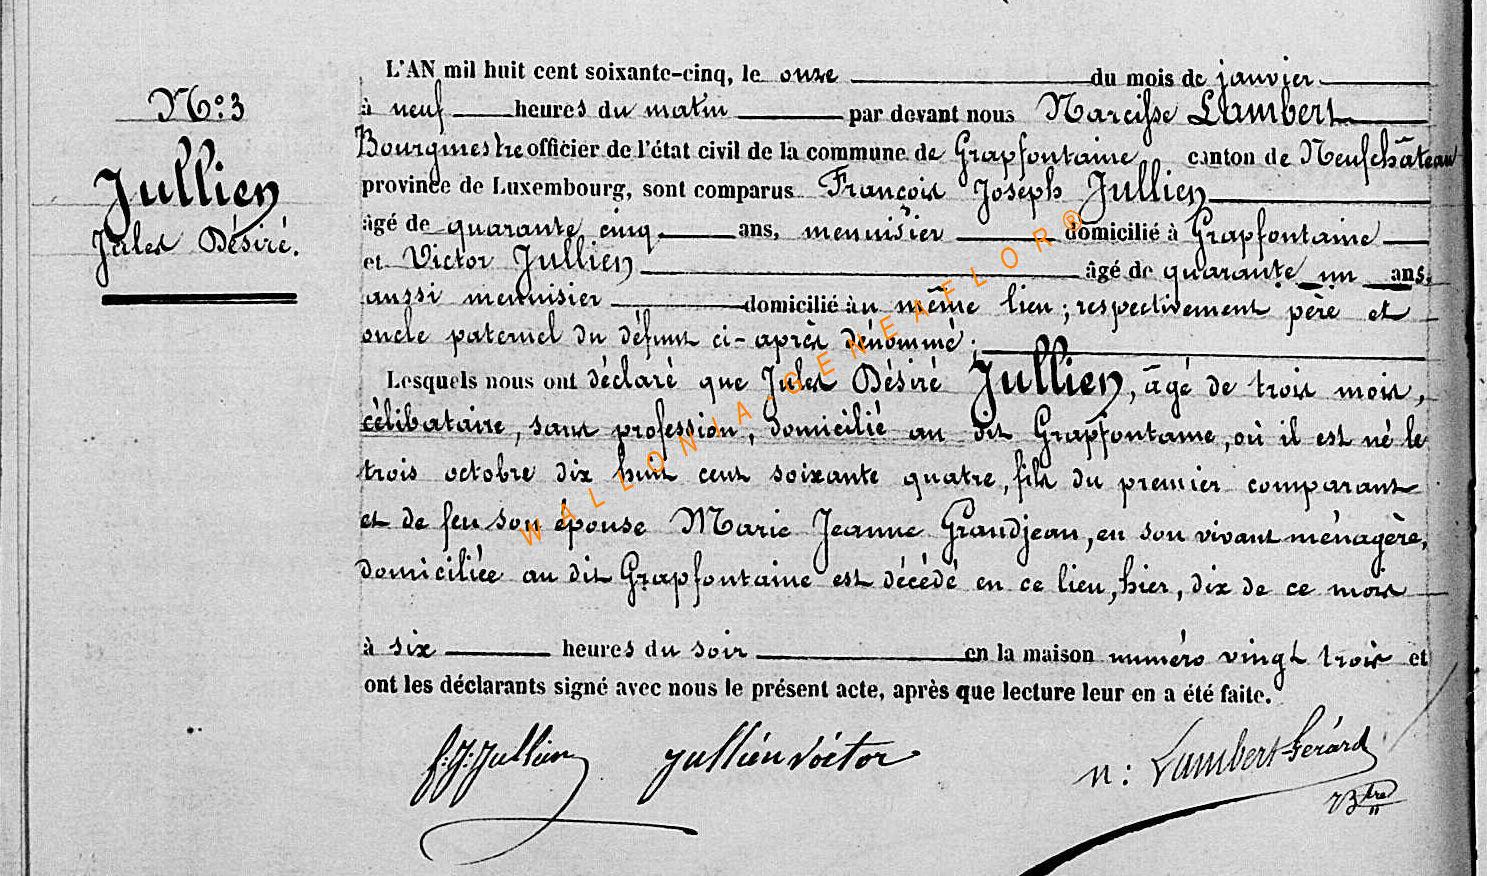 N.º 3
Jullien
Jules Désiré.
L'AN mil huit cent soixante-cinq, le onze du mois de janvier
à neuf heures du matin par devant nous Narcisse Lambert
Bourgmestre officier de l'état civil de la commune de Grapfontaine canton de Neufchâteau
province de Luxembourg, sont comparus François Joseph Jullien
âgé de quarante cinq ans, menuisier domicilié à Grapfontaine
et Victor Jullien âgé de quarante un ans,
aussi menuisier domicilié au même lieu ; respectivement père et
oncle paternel du défunt ci-après dénommé ;
Lesquels nous ont déclaré que Jules Désiré Jullien, âgé de trois mois,
célibataire, sans profession, domicilié au dit Grapfontaine, où il est né le
trois octobre dix huit cent soixante quatre, fils du premier comparant
et de feu son épouse Marie Jeanne Grandjean, en son vivant ménagère,
domiciliée au dit Grapfontaine est décédé en ce lieu, hier, dix de ce mois
à six heures du soir en la maison numéro vingt trois et
ont les déclarants signé avec nous le présent acte, après que lecture leur en a été faite.
f: J: Jullien jullien victor n: Lambert-Gérard
Btre
WALLONIA.GENEAFLOR®